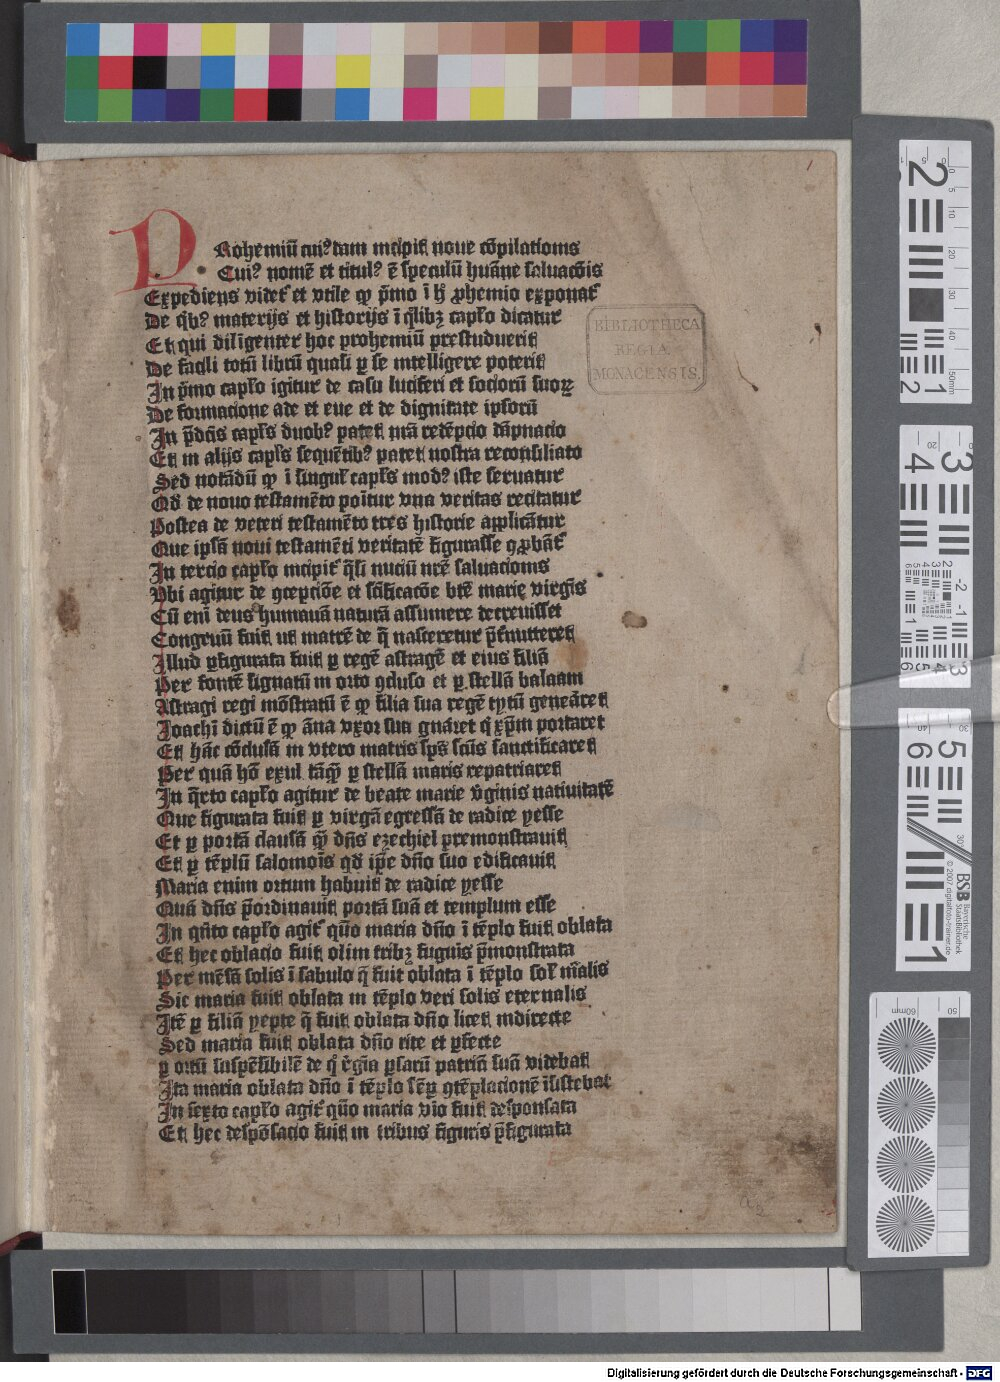 PRohemiū cui⁹dam incipit noue cōpilationis
Cui⁹ nomē et titul⁹ ē speculū humāne saluacōis
Expediens videt᷑ et vtile qꝫ p̄mo ī hͦ ꝓhemio exponat᷑
De qͥb⁹ materijs et historijs ī qͦlibꝫ capl̄o dicatur
Et qui diligenter hoc prohemiū prestuduerit
De facili totū librū quasi ꝑ se intelligere poterit
In p̄mo capl̄o igitur de casu luciferi et sociorū suoꝝ
De formacione ade et eue et de dignitate ipsorū
In p̄dcīs capl̄s duob⁹ patet nr̄a redēpcio dāpnacio
Et in alijs capl̄s sequētib⁹ patet nostra reconsiliato
Sed notādū qꝫ ī singul᷑ capl̄s mod⁹ iste seruatur
Qd̄ de nouo testamēto poītur vna veritas recitatur
Postea de veteri testamēto tres historie applicātur
Que ipsā noui testamēti veritatē figurasse ꝯꝓbāt᷑
In tercio capl̄o incipit᷑ qͣsi nuciū nrē saluacionis
Vbi agitur de ꝯcepciōe et scīficacōe btē marie virgīs
Cū enī deus humanā naturā assumere decreuisset
Congruū fuit ut matrē de q̄ nasceretur p̄mitteret
Illud ꝑfigurata fuit ꝑ regē astragē et eius filiā
Per fontē signatū in orto ꝯcluso et ꝑ stellā balaam
Astragi regi mōstratū ē qꝫ filia sua regē tytū geneāret
Joachī dictū ē qꝫ āna vxor sua gnāret q̄ xp̄m portaret
Et hāc cōclusā in vtero matris sp̄s scūs sanctificaret
Per quā hō exul tāqꝫ ꝑ stellā maris repatriaret
In qͣrto capl̄o agitur de beate marie v̄ginis natiuitatē
Que figurata fuit ꝑ virgā egressā de radice yesse
Et ꝑ portā clausā qꝫ dn̄s ezechiel premonstrauit
Et ꝑ tēplū salomoīs qd̄ ip̄e dn̄o suo edificauit
Maria enim ortum habuit de radice yesse
Quā dn̄s p̄ordinauit portā suā et templum esse
In qn̄to capl̄o agit᷑ qūo maria dn̄o ī tēplo fuit oblata
Et hec oblacio fuit olim tribꝫ figuris p̄monstrata
Per mēsā solis ī sabulo q̄ fuit oblata ī tēplo sol᷑ mīalis
Sic maria fuit oblata in tēplo veri solis eternalis
Itē ꝑ filiā yepte q̄ fuit oblata dn̄o licet indirecte
Sed maria fuit oblata dn̄o rite et ꝑfecte
ꝑ ortū suspēsibilē de qͦ r̄gīa ꝑsarū patriā suā videbat
Ita maria oblata dn̄o ī tēplo sēꝑ ꝯtēplacionē īsistebat
In sexto capl̄o agit᷑ qūo maria vio fuit desponsata
Et hec despōsacio fuit in tribus figuris p̄figurata
BIBLIOTHECA
REGIA
MONACENSIS.
a2
Digitalisierung gefördert durch die Deutsche Forschungsgemeinschaft - DFG